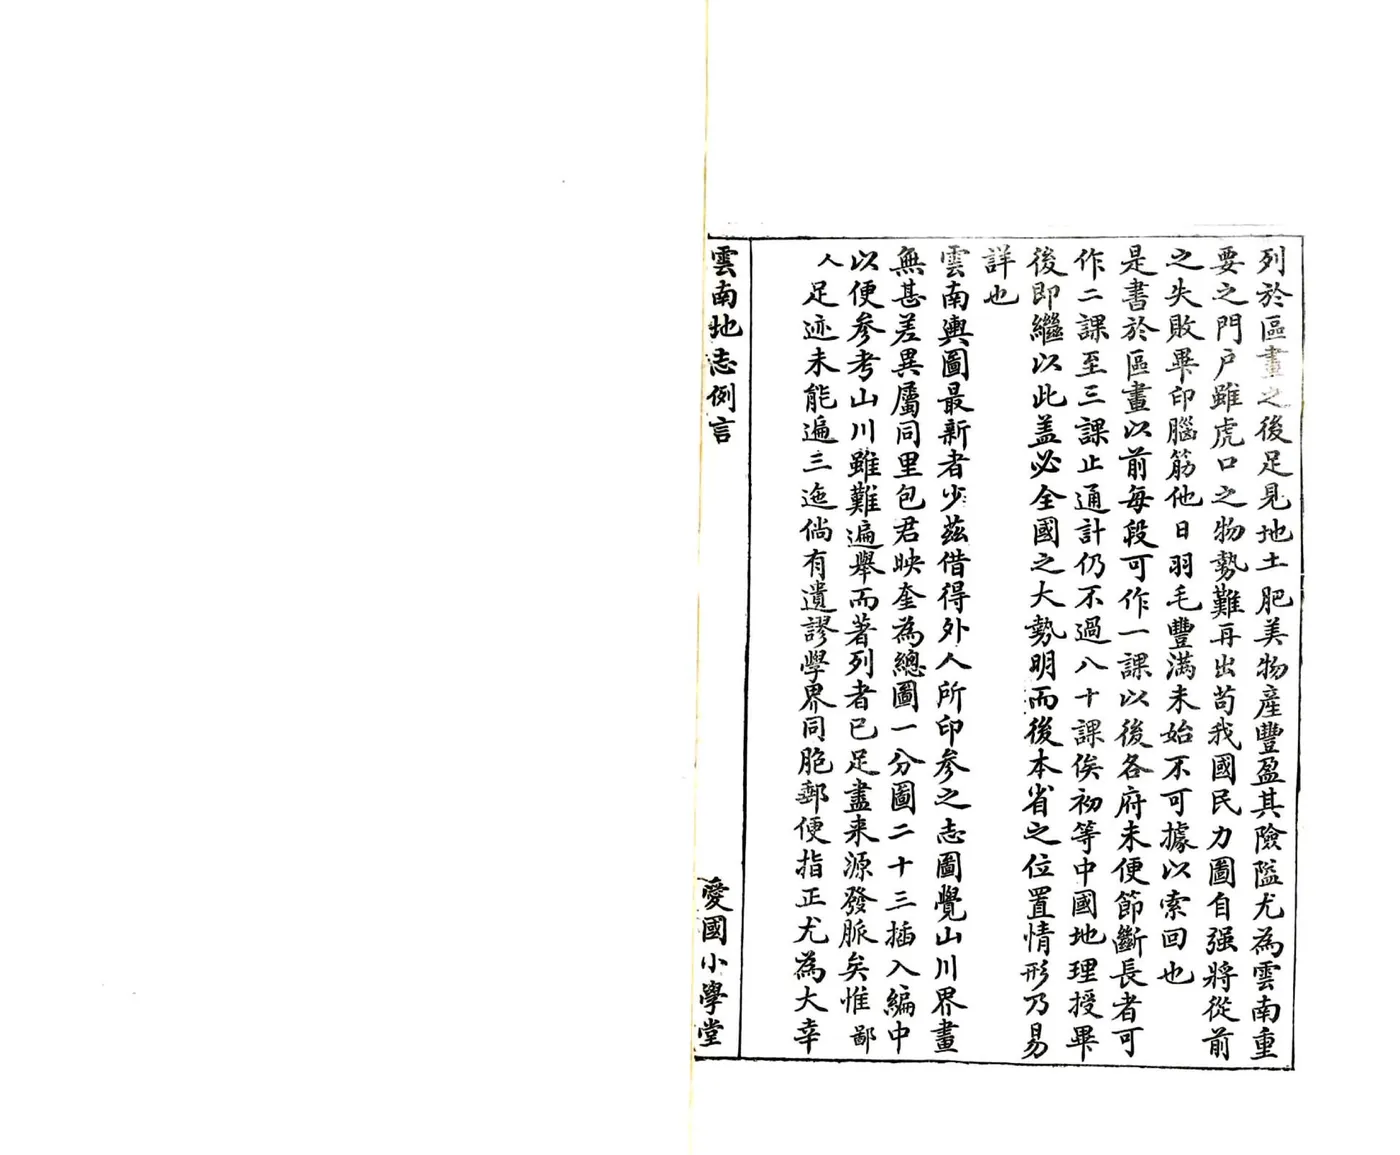 列於區畫之後足見地土肥美物產豐盈其險隘尤為雲南重
要之門戶雖虎口之物勢難再出苟我國民力圖自强將從前
之失敗畢印腦筋他日羽毛豐满未始不可據以索回也
是書於區畫以前每段可作一課以後各府未便節斷長者可
作二課至三課止通計仍不過八十課俟初等中國地理授畢
後即繼以此盖必全國之大勢明而後本省之位置情形乃易
詳也
雲南輿圖最新者少茲借得外人所印參之志圖覺山川界畫
無甚差異屬同里包君映奎為總圖一分圖二十三插入編中
以便參考山川雖難遍舉而著列者已足盡来源發脈矣惟鄙
人足迹未能遍三迤倘有遺謬學界同胞郵便指正尤為大幸
雲南地志例言
愛國小學堂